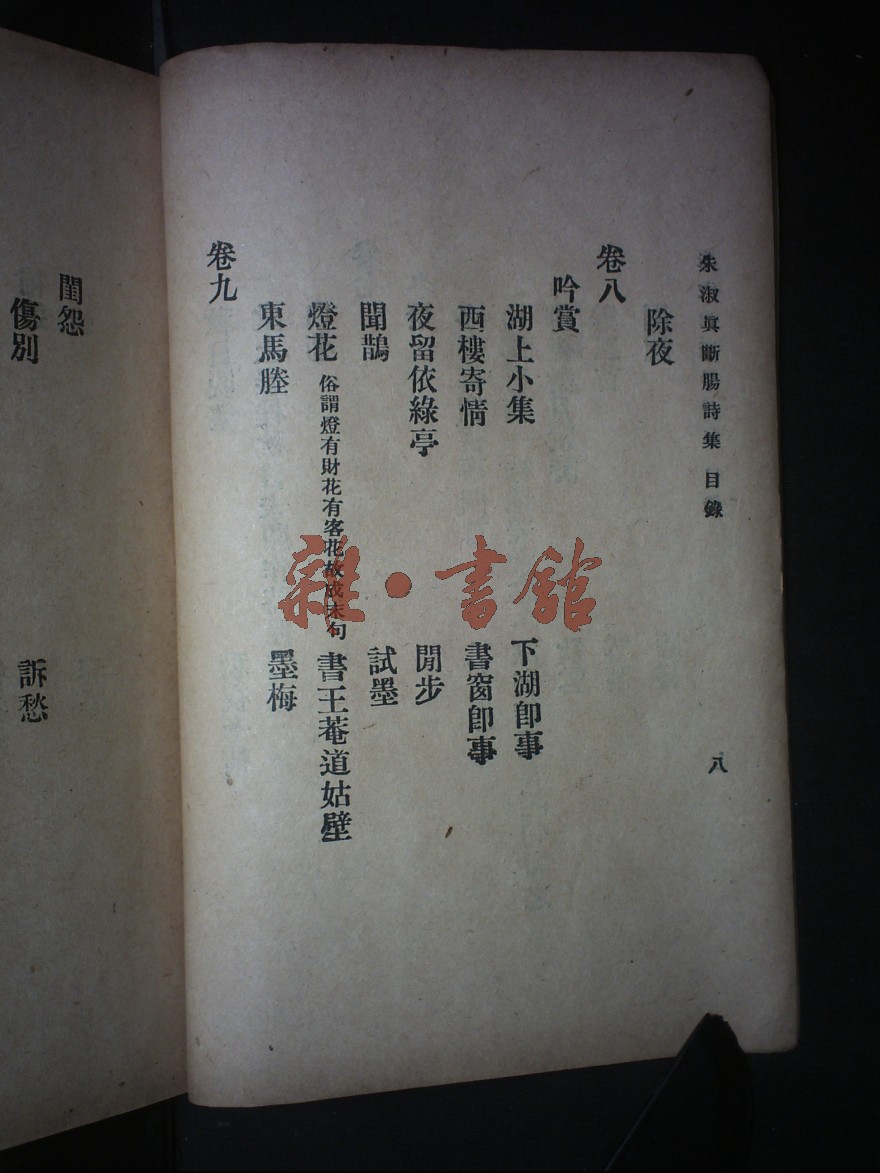 朱淑眞斷腸詩集 目錄 八
除夜
卷八
吟賞
湖上小集 下湖卽事
西樓寄情 書窗卽事
夜留依綠亭 閒步
聞鵲 試墨
燈花 俗謂燈有財花有客花故成末句 書王菴道姑壁
東馬塍 墨梅
卷九
閨怨
傷別 訴愁
雜·書館